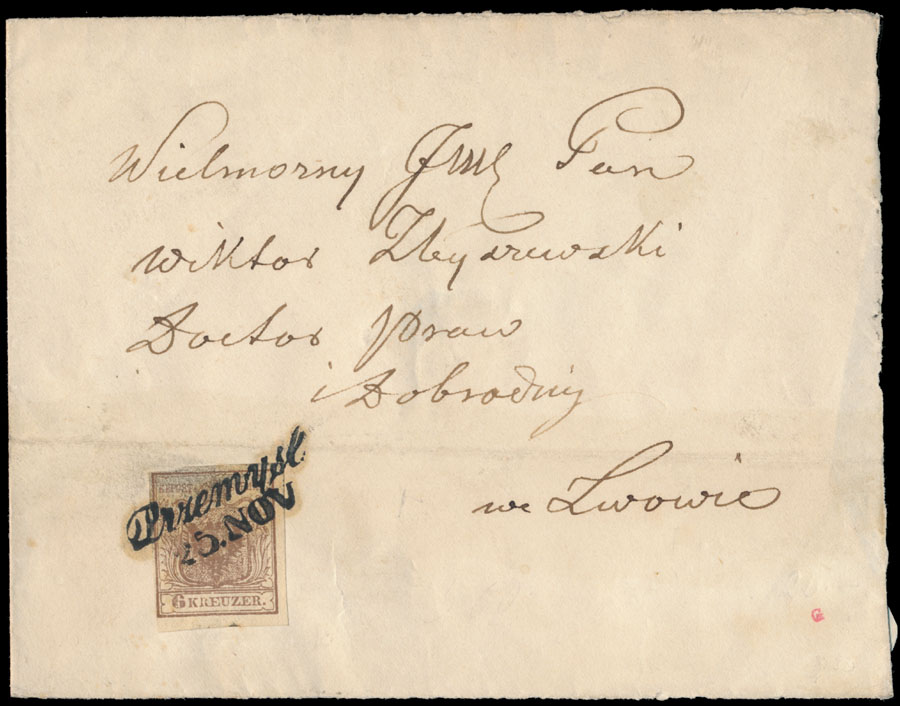 Wielmożny Jmć Pan
Wiktor Zbyszewski
Doctor praw
i Dobrodziej
we Lwowie
Przemysl.
25.NOV
6 KREUZER.
G